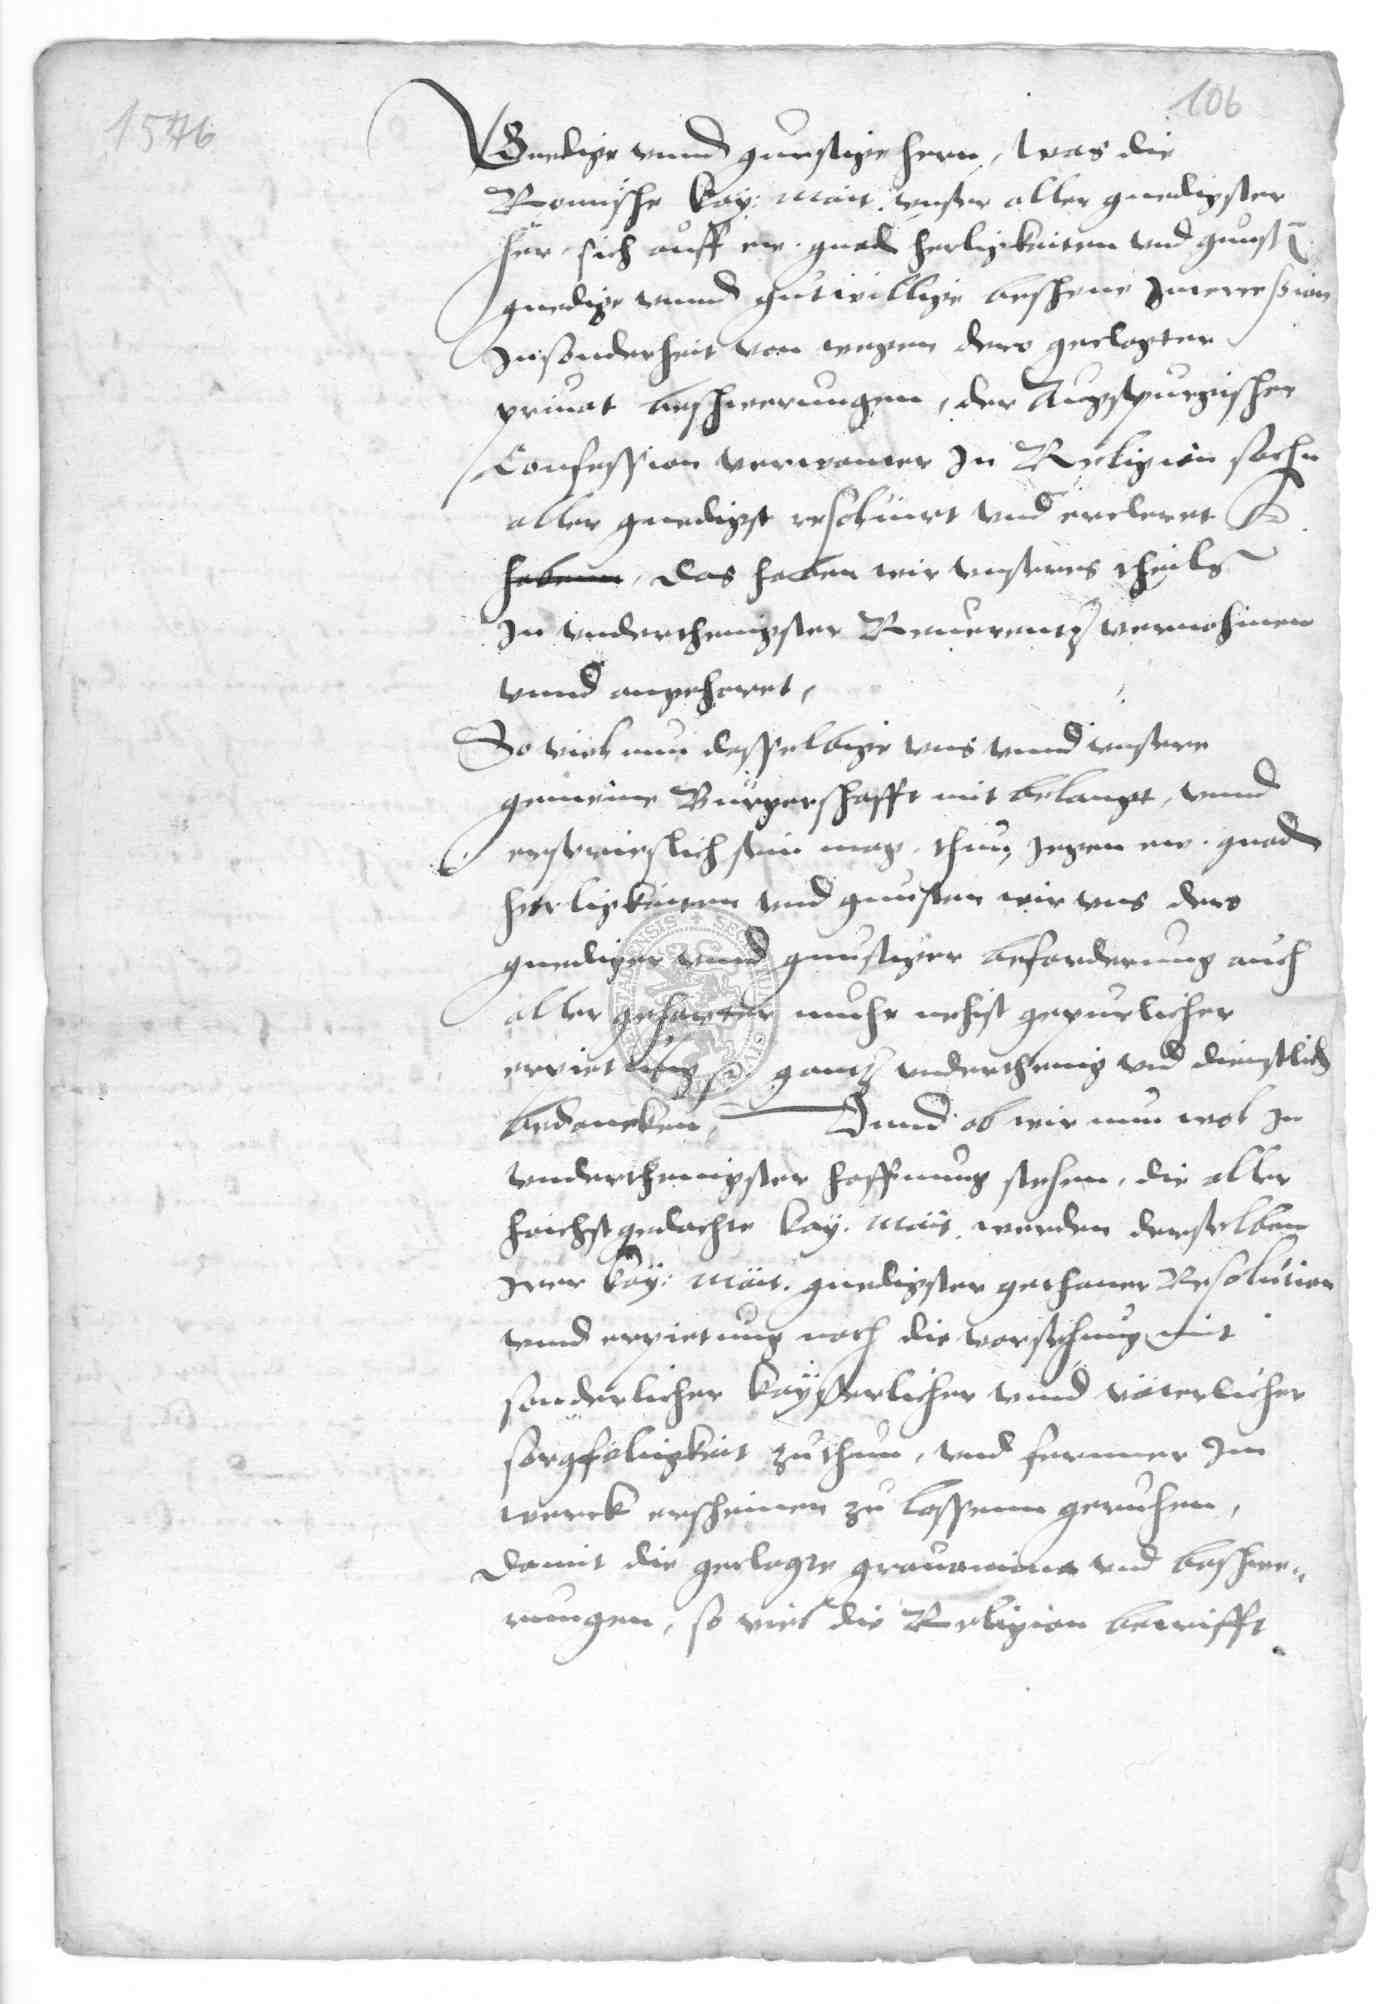 1546
106
Gnedige vnnd gunstige hern, Was die
Romische Kay: Mait. vnser aller gnedigster
her sich auff ew. gnad herligkeiten vnd gunst
gnedige vnnd gutwillige beschene Intercession
Insonderheit von wegen dero geclagter
priuat beschwerungen, der Augspurgischer
Confession verwanter In Religion sachn
aller gnedigst resoluirt vnd ercleret
habenn, das haben wir vnseres theils
In vnderthenigster Reuerentz vernohmen
vnnd angehoret,
So viel nun desselbige vns vnnd vnsere
gemeine Bürgerschafft mit belangt, vnnd
erspriesslich sein mag, thun Jegen ew. gnad
herligkeiten vnd gunsten wir vns dero
gnediger vnnd gunstiger beforderung auch
aller gehapter muhe nehist gepurlicher
erpietung gantz vnderthenig vnd dienstlich
bedancken, Vnnd ob wir nun wol In
vnderthenigster hoffnung stehen, die aller
hoichstgedachte Kay. Mait. werden derselben
Irer Kay: Mait. gnedigster gethaner Resolution
vnnd erpietung noch die vorsehung mit
sonderlicher Kayserlicher vnnd väterlicher
sorgfeligkeit zu thun, vnd ferner Im
werck erscheinen zu lassenn geruhen,
damit die geclagte grauamina vnd beschwe-
rungen, so viel die Religion betrifft